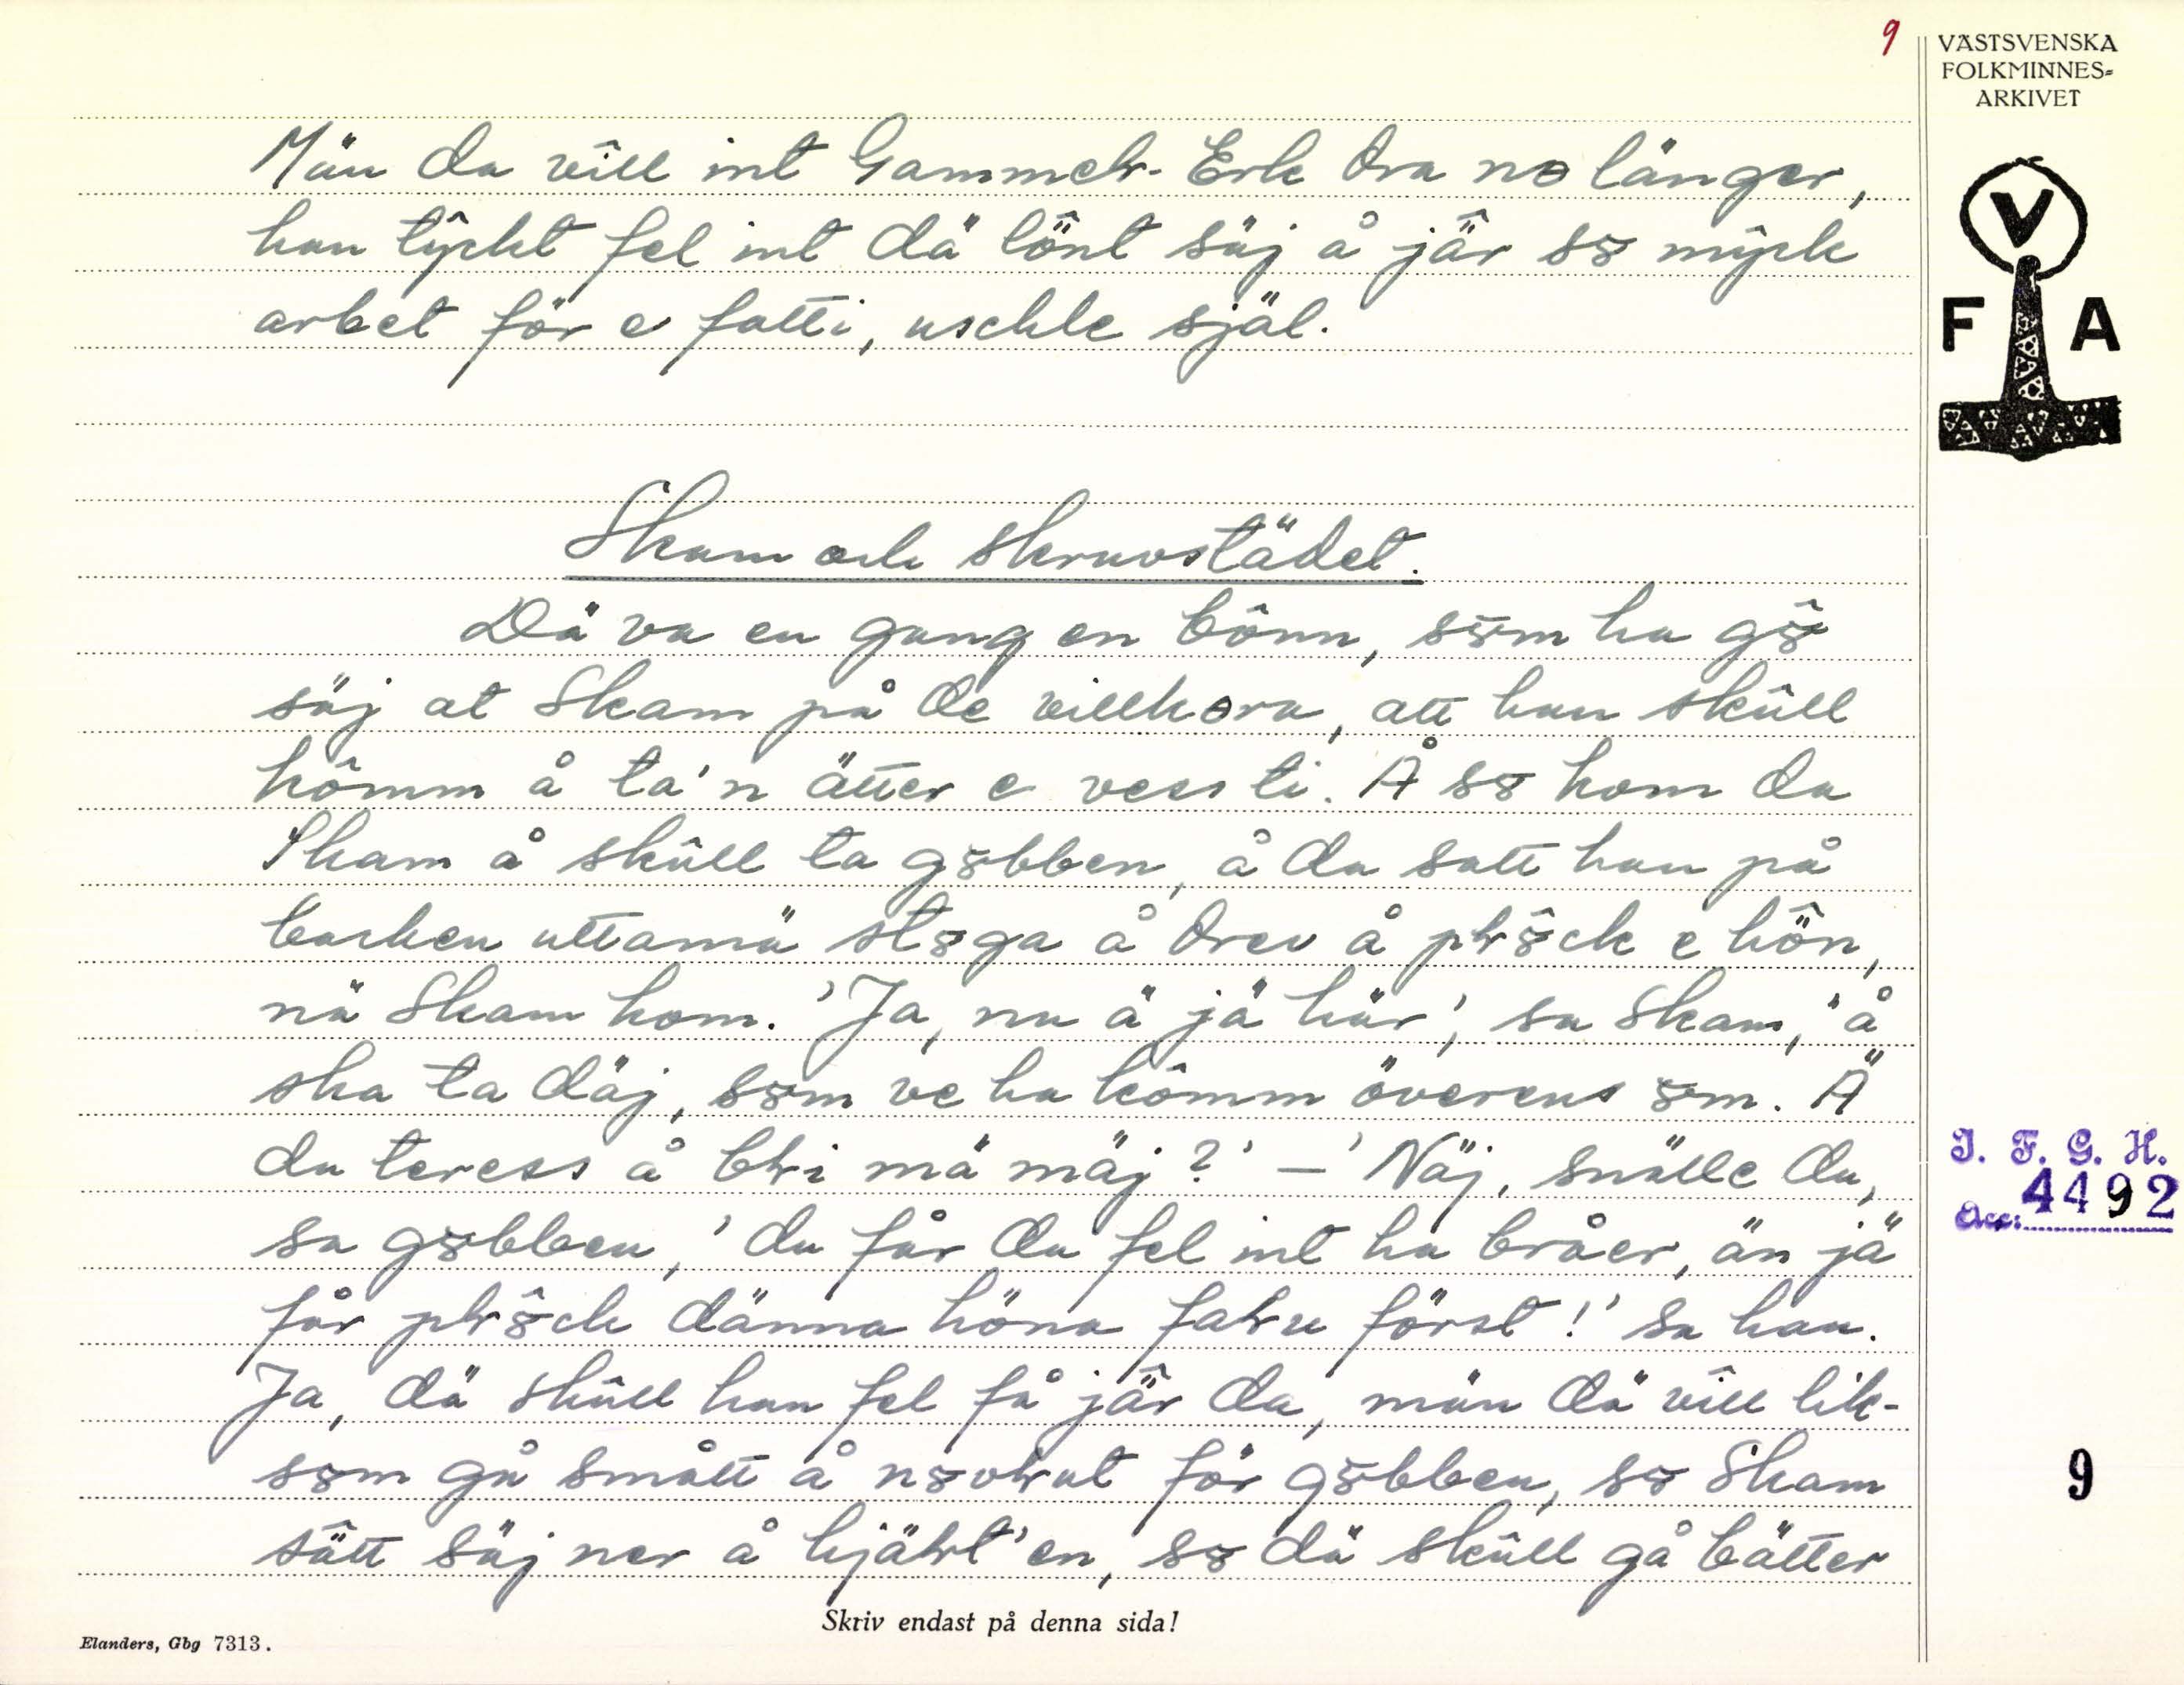 9
VÄSTSVENSKA
FOLKMINNES=
ARKIVET
V
F A
Män da vîll int Gammeƚ-Erk dra nɷ länger,
han tŷckt fel int dä lônt säj å jä̂r sɷ mŷck
arbet för e fatti, uschle själ.
Skam och skruvstädet.
Dä va en gang en bônn, sɷ̈m ha gɷ̂
säj at Skam på de villkɷra, att han skûll
kômm å ta'n ätter e vess ti. Å sɷ kom da
Skam å skûll ta gɷbben, å da satt han på
backen uttamä stɷga å drev å pƚɷ̂ck e hö̂n,
nä Skam kom. 'Ja, nu ä jä här', sa Skam, 'å
ska ta däj, sɷm ve ha kômm överens ɷm. Ä
du teress å bƚi mä mäj?' – 'Näj, snälle du,
sa gɷbben, 'du får da fel int ha bråer, än jä
får pƚɷ̂ck dänna höna faƚu först!' sa han.
Ja, dä skûll han fel få jä̂r da, män dä vîll lik-
sɷm gå smått å nɷvƚut för gɷbben, sɷ Skam
sä̂tt säj ner å hjäƚt'en, sɷ dä skûll gå bätter
I. F. G. H.
Acc: 4492
9
Skriv endast på denna sida!
Elanders, Gbg 7313.